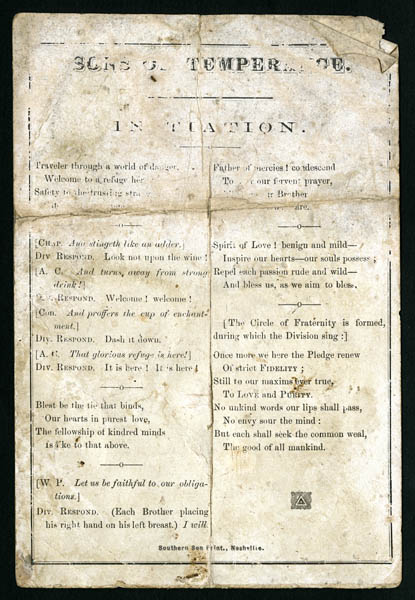 SONS OF TEMPERANCE.
INITIATION.
Traveler through a world of danger,
Welcome to a refuge here
Safety to the trusting
[CHAP. And stingeth like an adder.]
DIV RESPOND. Look not upon the wine!
[A. C. And turns, away from strong
drink!]
RESPOND. Welcome! welcome!
[CON. And proffers the cup of enchant-
ment.]
DIV. RESPOND. Dash it down.
[A. C. That glorious refuge is here!]
DIV. RESPOND. It is here! It is here!
Blest be the tie that binds,
Our hearts in purest love,
The fellowship of kindred minds
Is like to that above.
[W. P. Let us be faithful to our obliga-
tions.]
DIV. RESPOND. (Each Brother placing
his right hand on his left breast.) I will.
Father of mercies! condescend
To our fervent prayer,
Brother
Spirit of Love! benign and mild—
Inspire our hearts—our souls possess;
Repel each passion rude and wild—
And bless us, as we aim to bless.
[The Circle of Fraternity is formed,
during which the Division sing:]
Once more we here the Pledge renew
Of strict FIDELITY;
Still to our maxims ever true,
To LOVE and PURITY.
No unkind words our lips shall pass,
No envy sour the mind:
But each shall seek the common weal,
The good of all mankind.
Southern Son Print., Nashville.